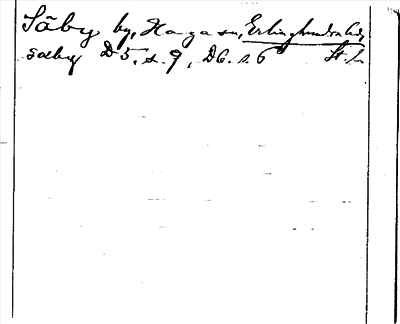 Säby by, Haga sn, Erlinghundra hd,
sæby D 5. s. 9, D6. s. 6 St. l.